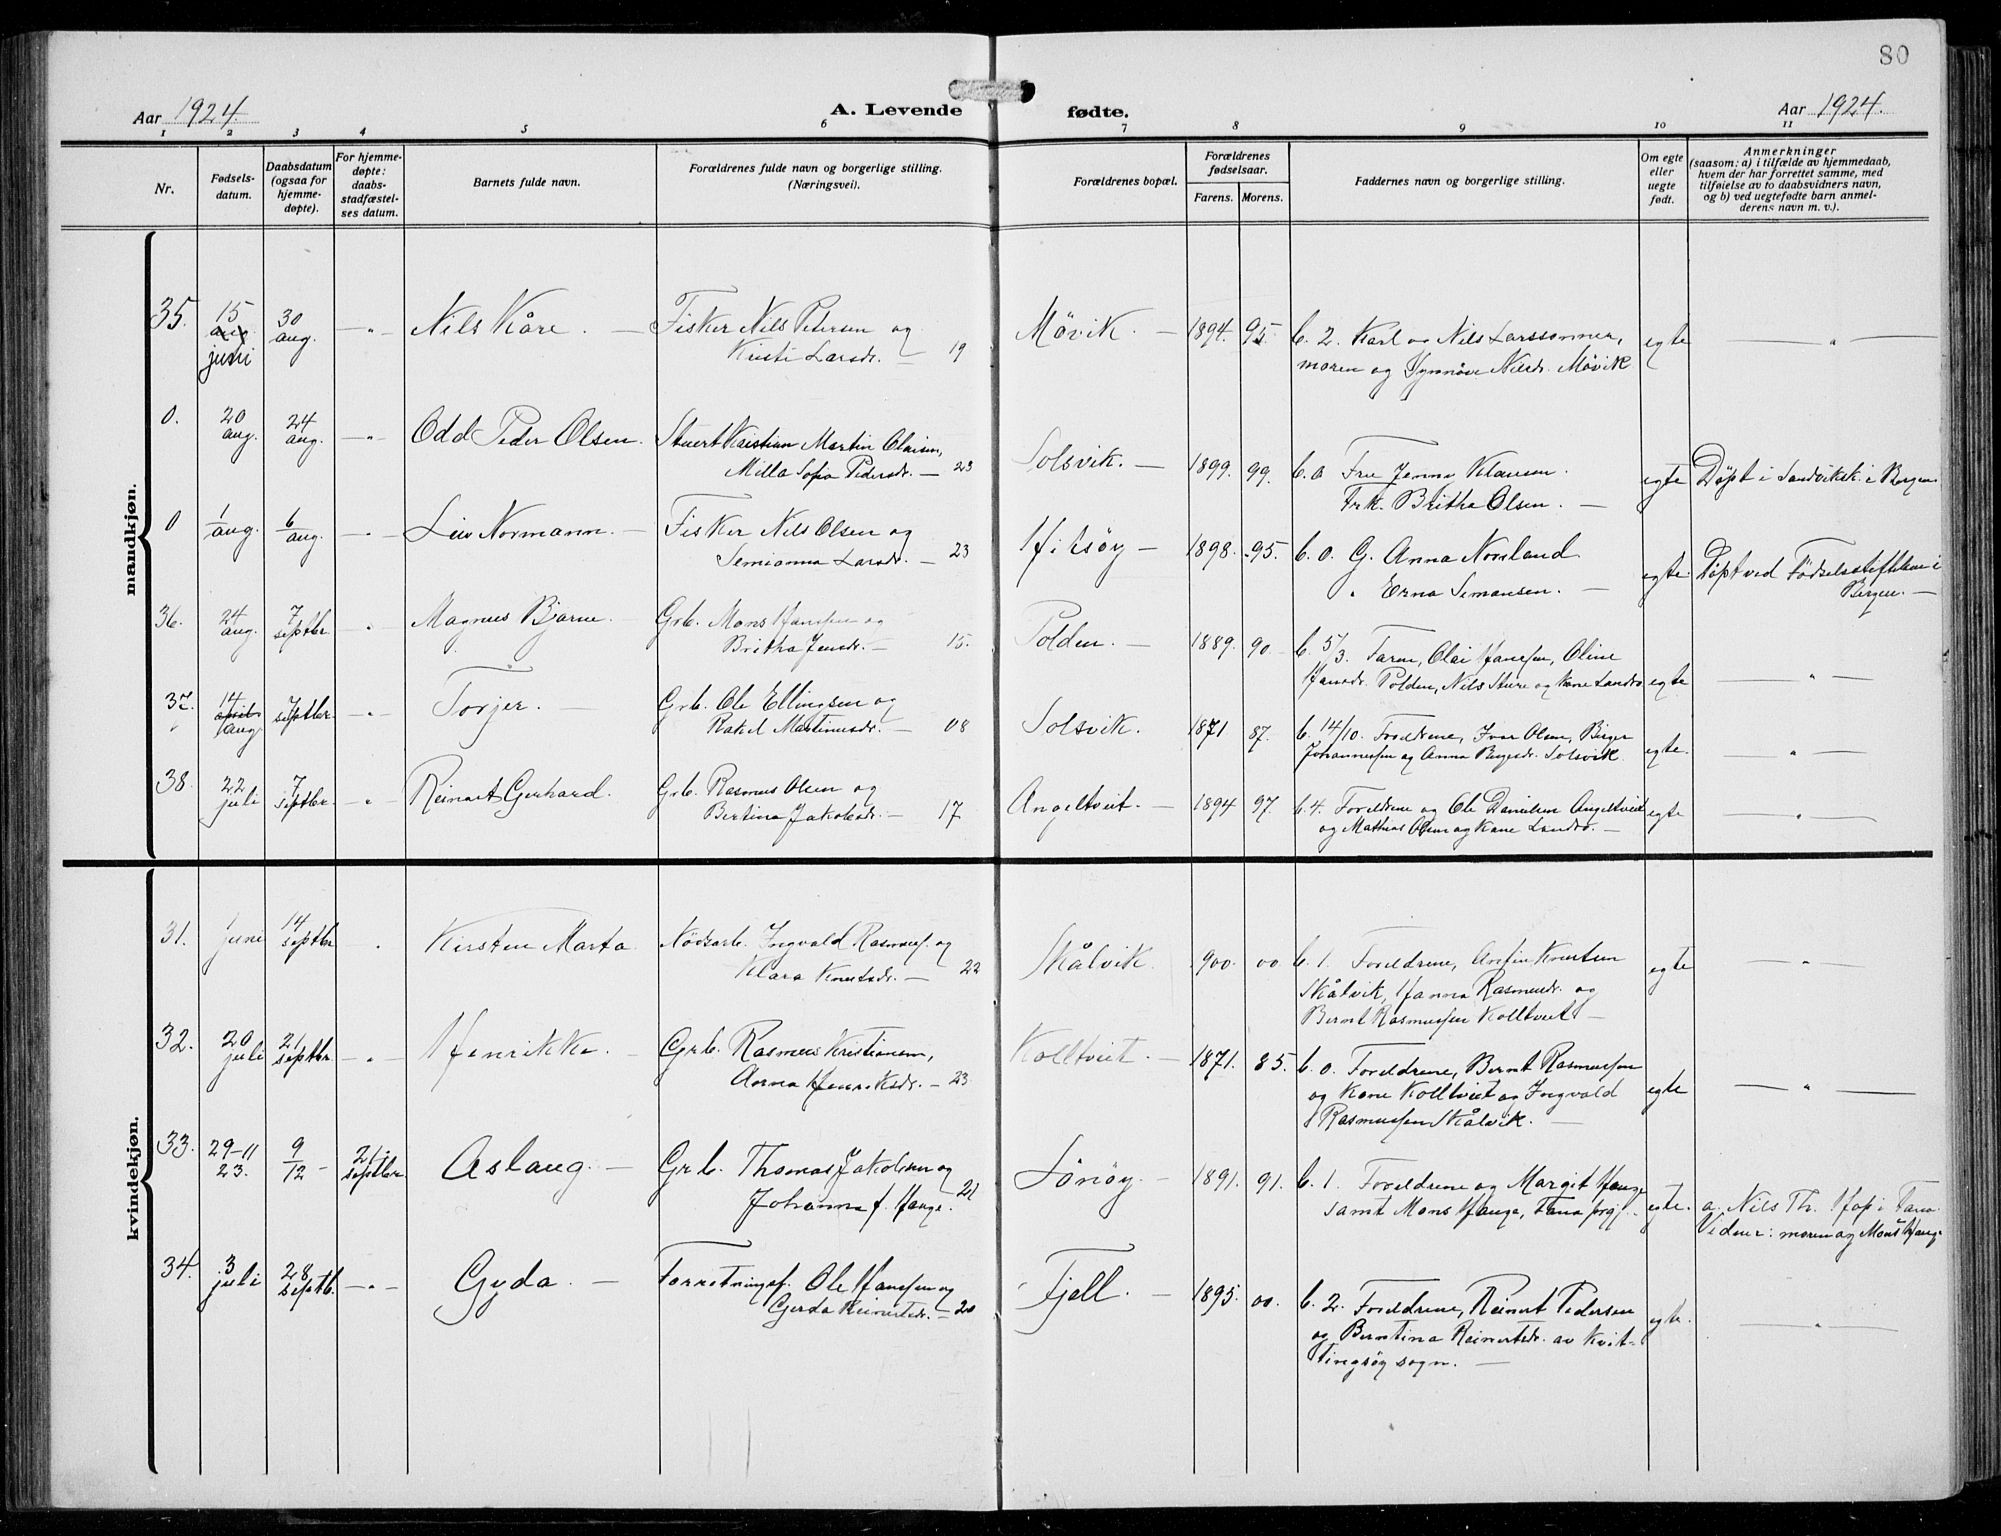 80
Aar 1924
A. Levende fødte.
Aar 1924.
1 2 3 4 5 6 7 8 9 10 11
Nr.
Fødsels-
datum.
Daabsdatum
(ogsaa for
hjemme-
døpte).
For hjemme-
døpte:
daabs-
stadfæstel-
ses datum.
Barnets fulde navn.
Forældrenes fulde navn og borgerlige stilling.
(Næringsvei).
Forældrenes bopæl.
Forældrenes
fødselsaar.
Farens. Morens.
Faddernes navn og borgerlige stilling.
Om egte
eller
uegte
født.
Anmerkninger
(saasom: a) i tilfælde av hjemmedaab,
hvem der har forrettet samme, med
tilføielse av to daabsvidners navn,
og b) ved uegtefødte barn anmel-
derens navn m. v.).
mandkjøn.
35. 15 aug. juni 30 aug. — " — Nils Kåre. — Fisker Nils Petersen og
Kirsti Larsdr. — 19
Møvik. — 1894. 95. b. 2. Karl og Nils Larssønner,
moren og Synnøve Nilsdr. Møvik
egte — " —
0. 20 aug. 24 aug. — " — Odd Peder Olsen. Stuert Kristian Martin Olaisen,
Milla Sofia Pedersdr. — 23
Solsvik. — 1899. 99. b. 0 Fru Jenny Klausen.
Frk. Britha Olsen. —
egte Døpt i Sandviksk. i Bergen
0 1 aug. 6 aug. — " — Leiv Normann. — Fisker Nils Olsen og
Semianna Larsdr. — 23
Hitsøy — 1898. 95. b. 0. G. Anna Nordland
" Erna Simonsen. —
egte Døpt ved Fødselsstiftelsen i
Bergen. —
36. 24 aug. 7 septbr. " Magnus Bjarne. — Grb. Mons Hansen og
Britha Jensdr. — 15.
Polden. — 1889. 90 b. 5/3. Faren, Olai Hansen, Oline
Hansdr. Polden, Nils Sture og Kone Landro
egte — " —
37. 14 april aug 7 septbr. — " — Torjer. — Grb. Ole Ellingsen og
Rakel Martinusdr. — 08
Solsvik. 1871 87. b. 14/10. Foreldrene, Ivar Olsen, Birger
Johannessen og Anna Birgersdr. Solsvik
egte. — " —
38. 22 juli 7 septbr. — " — Reinart Gerhard. Grb. Rasmus Olsen og
Bertina Jakobsdr. — 17
Angeltveit. — 1894 97. b. 4. Foreldrene og Ole Danielsen Angeltveit
og Mathias Olsen og Kone Landro. —
egte — " —
kvindekjøn.
31. 1 juni 14 septbr " Kirsten Marta Nødsarb. Ingvald Rasmuss. og
Klara Knutsdr. — 22
Skålvik. 900. 00. b. 1. Foreldrene, Arfin Knutsen
Skålvik, Hanna Rasmusdr. og
Bernt Rasmussen Kolltveit —
egte — " —
32. 20 juli 21 septbr. — " — Henrikke. — Grb. Rasmus Kristiansen,
Anna Henriksdr. — 23
Kolltveit. — 1871. 85. b. 0. Foreldrene, Bernt Rasmussen
og Kone Kolltveit og Ingvald
Rasmussen Skålvik. —
egte — " —
33. 29-11 23. 9/12 — 21. septbr. Aslaug. — Grb. Thomas Jakobsen og
Johanna f. Hauge. 21
Sønøy. — 1891. 91. b. 1. Foreldrene og Margit Hauge
samt Mons Hauge, Fana
egte. a. Nils Th. Hop i Fana
Vidner: moren og Mons Haug-
34. 3 juli 28 septb. — " — Gyda. — Forretningsf. Ole Hansen og
Gerda Reinertsdr. — 20
Fjell. — 1895. 00. b. 2. Foreldrene, Reinert Pedersen
og Berntina Reinertsdr. av Kvit-
tingsøy sogn. —
egte. — " —